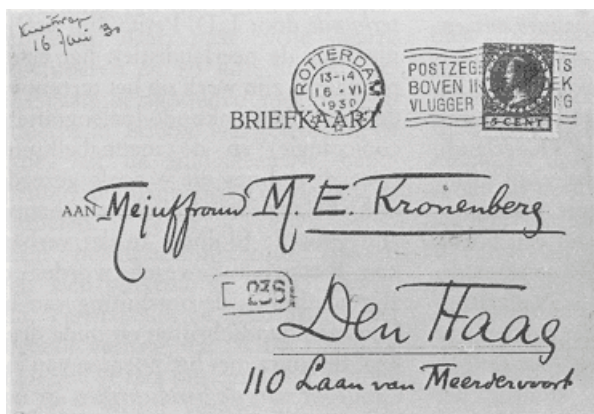 16 Juni 30
ROTTERDAM
13-14
16 VI
1930
POSTZEG IS
BOVEN IN EK
VLUGGER NG
5 CENT
BRIEFKAART
AAN Mejuffrouw M E. Kronenberg
Den Haag
110 Laan van Meerdervoort